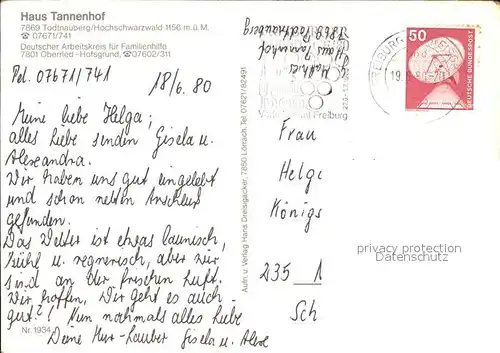 Haus Tannenhof
7869 Todtnauberg/Hochschwarzwald 1156 m.ü.M.
☎ 07671/741
Deutscher Arbeitskreis für Familienhilfe
7801 Oberried - Hofsgrund, ☎07602/311
Tel. 07671/741
18/6. 80
Meine liebe Helga;
alles Liebe senden Gisela u.
Alexandra.
Wir haben uns gut eingelebt
und schon netten Anschluß
gefunden.
Das Wetter ist etwas launisch,
kühl u. regnerisch, aber wir
sind an der frischen Luft.
Wir hoffen, Dir geht es auch
gut?! Nun nochmals alles Liebe
Deine Gisela u. Alex
Nr. 1934
Aufn. u. Verlag Hans Dreisigacker, 7850 Lörrach, Tel. 07621/82491
Haus Tannenhof
7869 Todtnauberg
Freiburg
FREIBURG
50
DEUTSCHE BUNDESPOST
Frau
Helga
Königs
235 1
Sch
privacy protection
Datenschutz